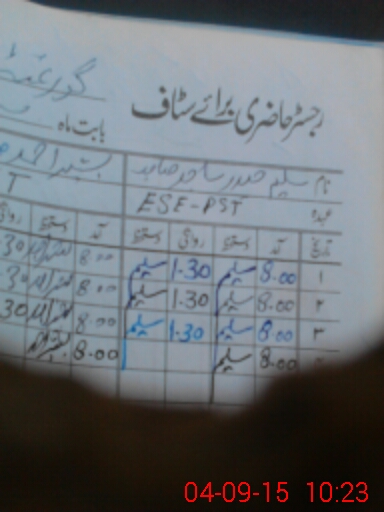 رجسٹر حاضری برائے سٹاف
گورنمنٹ
بابت ماہ
نام سلیم حیدر ساجد صاحب بشیر احمد
عہدہ ESE-PST T
تاریخ آمد دستخط روانگی دستخط آمد دستخط روانگی
۱ 8.00 سلیم 1.30 سلیم 8.00 30
۲ 8.00 سلیم 1.30 سلیم 8.00 30
۳ 8.00 سلیم 1.30 سلیم 8.00 30
8.00 سلیم 8.00
04-09-15 10:23